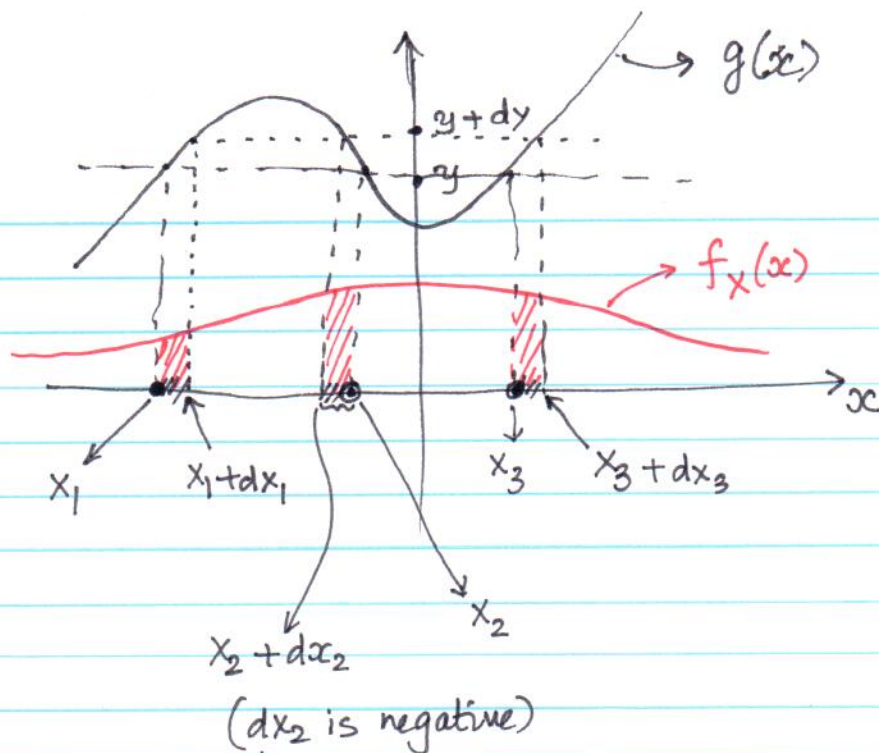 g(x)
y + dy
y
f_X(x)
x
x₁
x₁+dx₁
x₃
x₃+dx₃
x₂
x₂+dx₂
(dx₂ is negative)